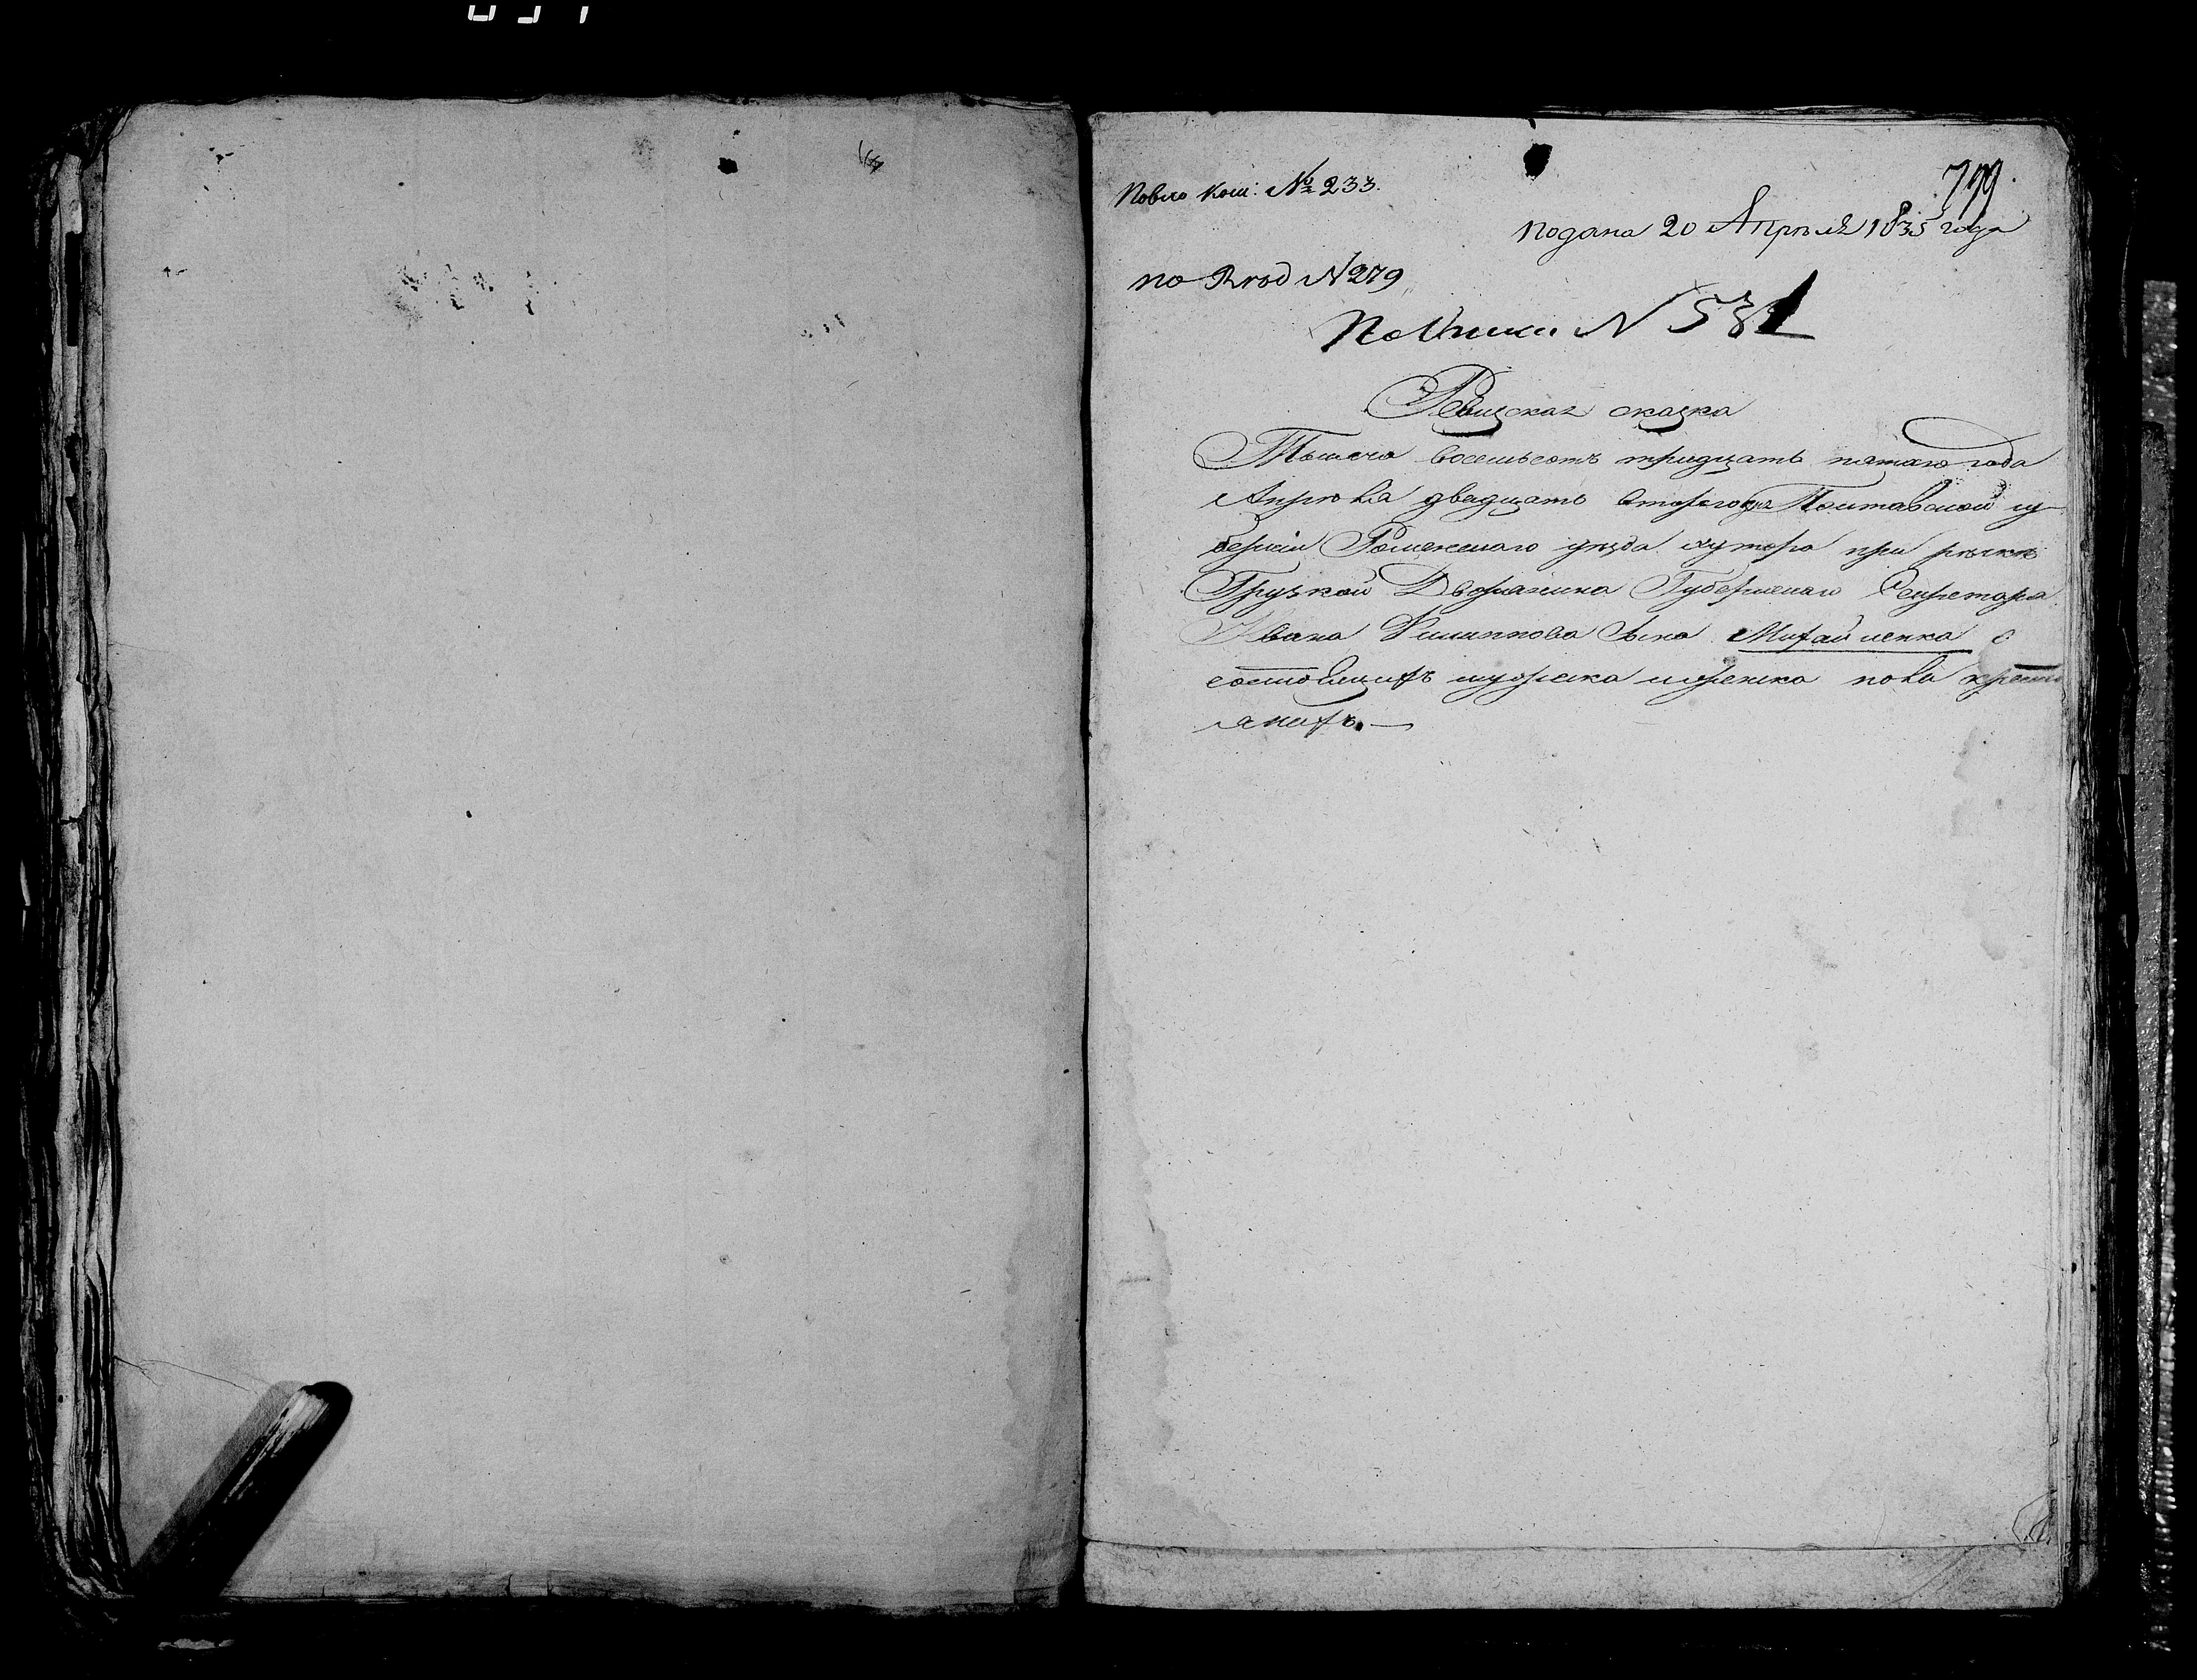 799.
Повло Ком: № 233.
подана 20 Апрѣля 1835 года
по N 279
По Описи N 531
Ревизская сказка
Тысяча восемьсотъ тридцать пятаго года
Апрѣля двадцать втораго дня Полтавской гу-
берніи Роменскаго уѣзда хутора при рѣчкѣ
Грузкой Дворянина Губернскаго Секретаря
Ивана Филиппова сына Михайленка о
состоящихъ мужеска и женска пола крестъ
янахъ. —